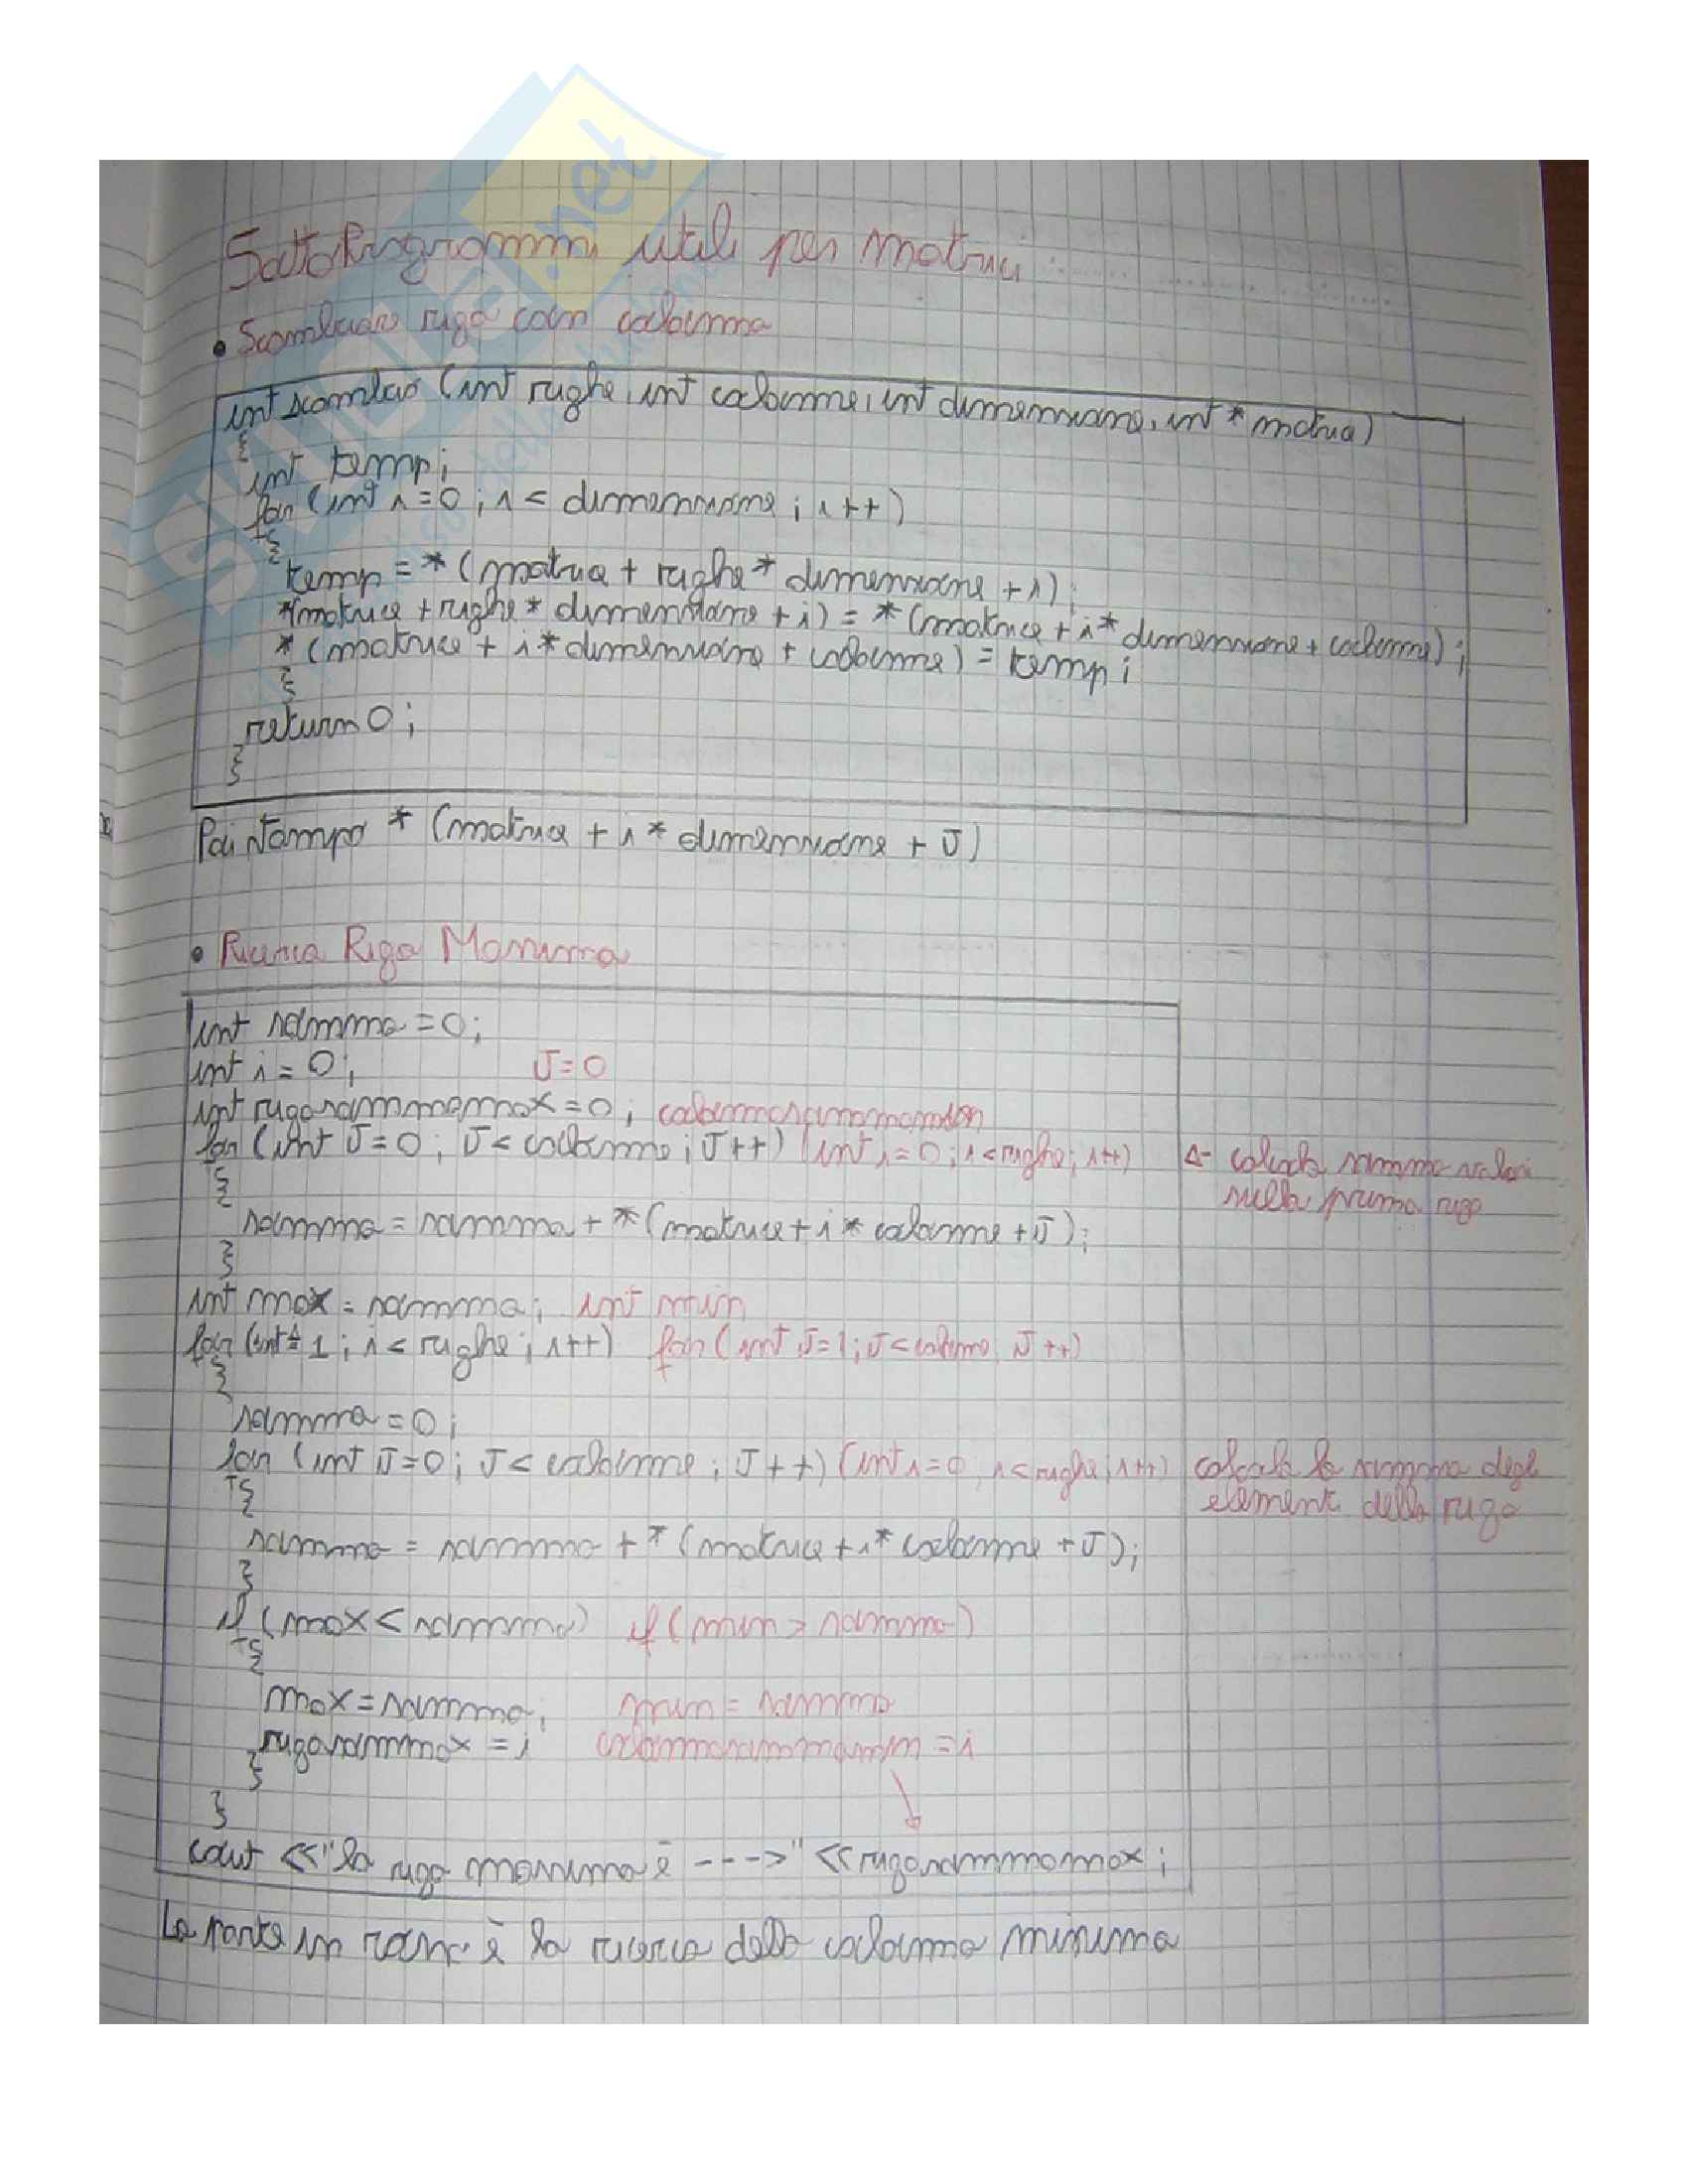 SottoProgrammi utili per matrici
• Scambiare riga con colonna
int scambio (int righe, int colonne, int dimensione, int * matrice)
{
int temp;
for (int i=0; i< dimensione; i++)
{
temp = * (matrice + righe * dimensione + i);
*(matrice + righe * dimensione + i) = *(matrice + i * dimensione + colonne);
* (matrice + i * dimensione + colonne) = temp;
}
return 0;
}
Poi stampo * (matrice + i * dimensione + J)
• Ricerca Riga Massima
int somma = 0;
int i = 0; J=0
int rigasommamax = 0; colonnasommamin
for (int J=0; J< colonne; J++) (int i=0; i<righe; i++) calcola somma valori
nella prima riga
{
somma = somma + *(matrice + i * colonne + J);
}
int max = somma; int min
for (int i=1; i< righe; i++) for (int J=1; J<colonne J++)
{
somma = 0;
for (int J=0; J< colonne; J++) (int i=0, i<righe, i++) calcola la somma degli
elementi della riga
{
somma = somma + * (matrice + i* colonne + J);
}
if (max < somma) if (min > somma)
{
max = somma; min = somma
rigasommax = i colonnasommamin = i
}
}
cout << "la riga massima è --->" << rigasommamax;
La parte in rosa è la ricerca della colonna minima